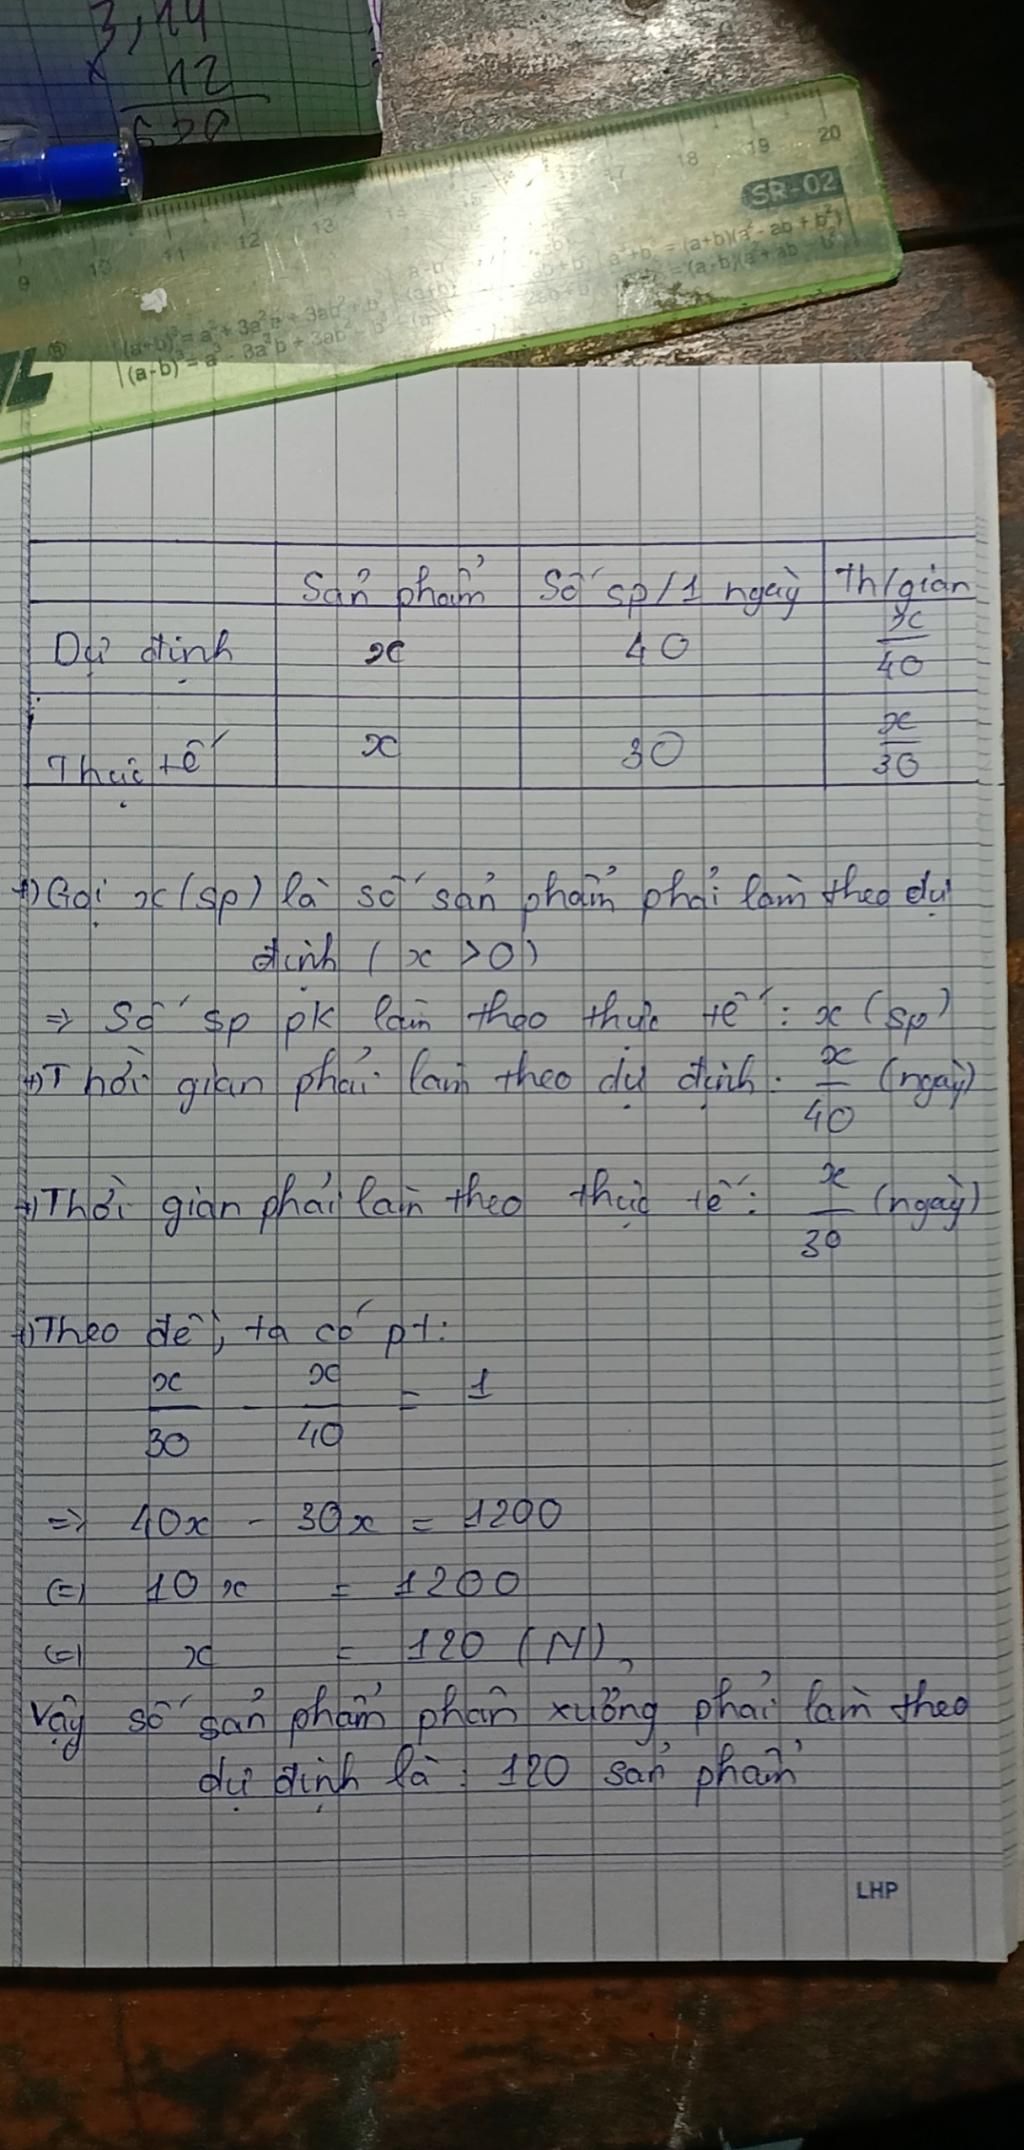 3,14
x 12
20
9 10 11 12 13 14 15 17 18 19 20
SR-02
(a+b)³ = a³ + 3a²b + 3ab² + b³
(a-b)³ = a³ - 3a²b + 3ab² - b³
= (a+b)(a² - ab + b²)
= (a-b)(a² + ab + b²)
Sản phẩm Số sp/1 ngày Th/gian
Dự định x 40 x/40
Thực tế x 30 x/30
+) Gọi x (sp) là số sản phẩm phải làm theo dự
định ( x > 0 )
=> Số sp pk làm theo thực tế : x (sp)
+) Thời gian phải làm theo dự định : x/40 (ngày)
+) Thời gian phải làm theo thực tế : x/30 (ngày)
+) Theo đề, ta có pt:
x/30 - x/40 = 1
=> 40x - 30x = 1200
(=) 10x = 1200
(=) x = 120 (N)
Vậy số sản phẩm phân xưởng phải làm theo
dự định là : 120 sản phẩm
LHP